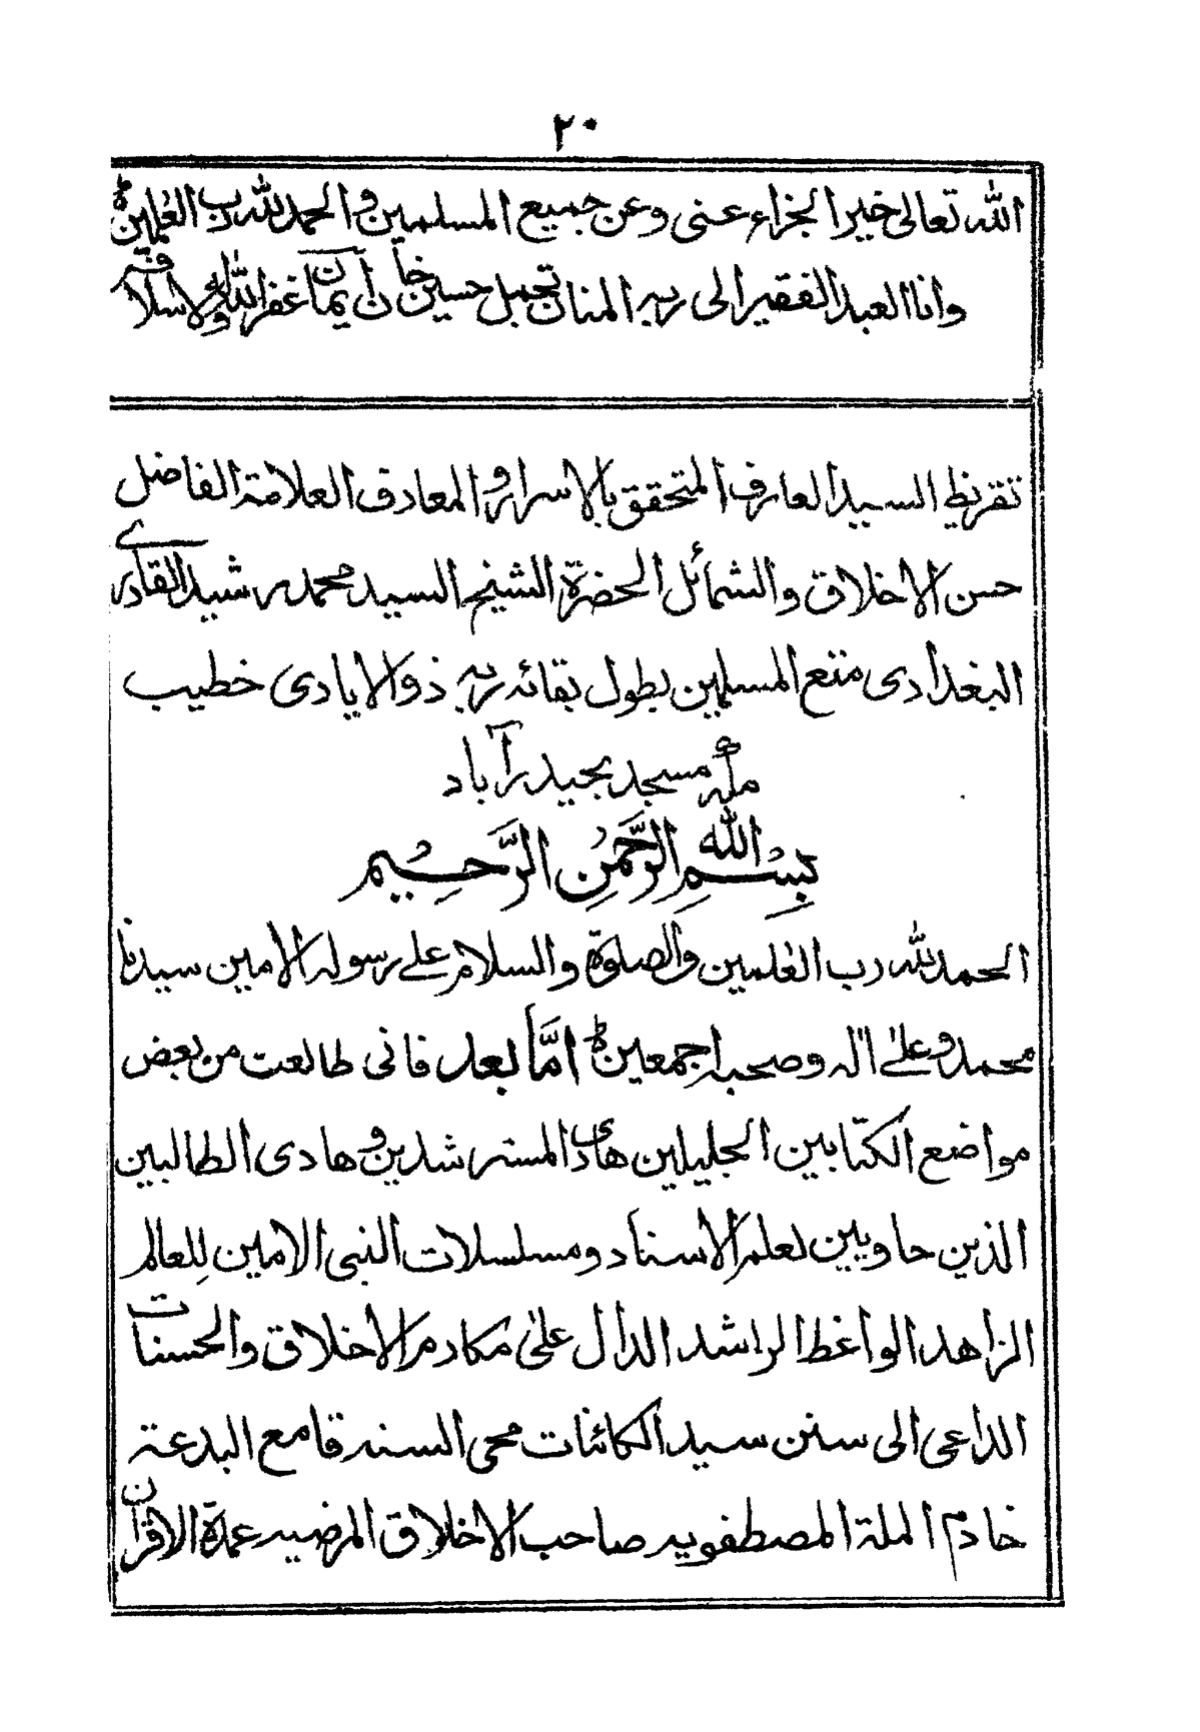 ٢٠
الله تعالى خير الجزاء عنى وعن جميع المسلمين والحمد لله رب العلمين
وانا العبد الفقير الى ربه المنان تجمل حسين خان غفر الله ولاسلافه
تقريظ السيد العارف المتحقق بالاسرار والمعارف العلامة الفاضل
حسن الاخلاق والشمائل الحضرة الشيخ السيد محمد رشيد القادرى
البغدادى متع المسلمين بطول بقائه ربه ذو الايادى خطيب
مكه مسجد بحيدرآباد
بِسْمِ اللهِ الرَّحْمٰنِ الرَّحِيْمِ
الحمد لله رب العٰلمين والصلوة والسلام على رسوله الامين سيدنا
محمد وعلىٰ اٰله وصحبه اجمعين امَّا بعد فانى طالعت من بعض
مواضع الكتابين الجليلين هادى المسترشدين وهادى الطالبين
الذين حاويين لعلم الاسناد ومسلسلات النبى الامين لِلعالم
الزاهد الواعظ الراشد الدال علىٰ مكارم الاخلاق والحسنات
الداعى الى سنن سيد الكائنات محى السنه قامع البدعة
خادم الملة المصطفويه صاحب الاخلاق المرضيه عمدة الاقران